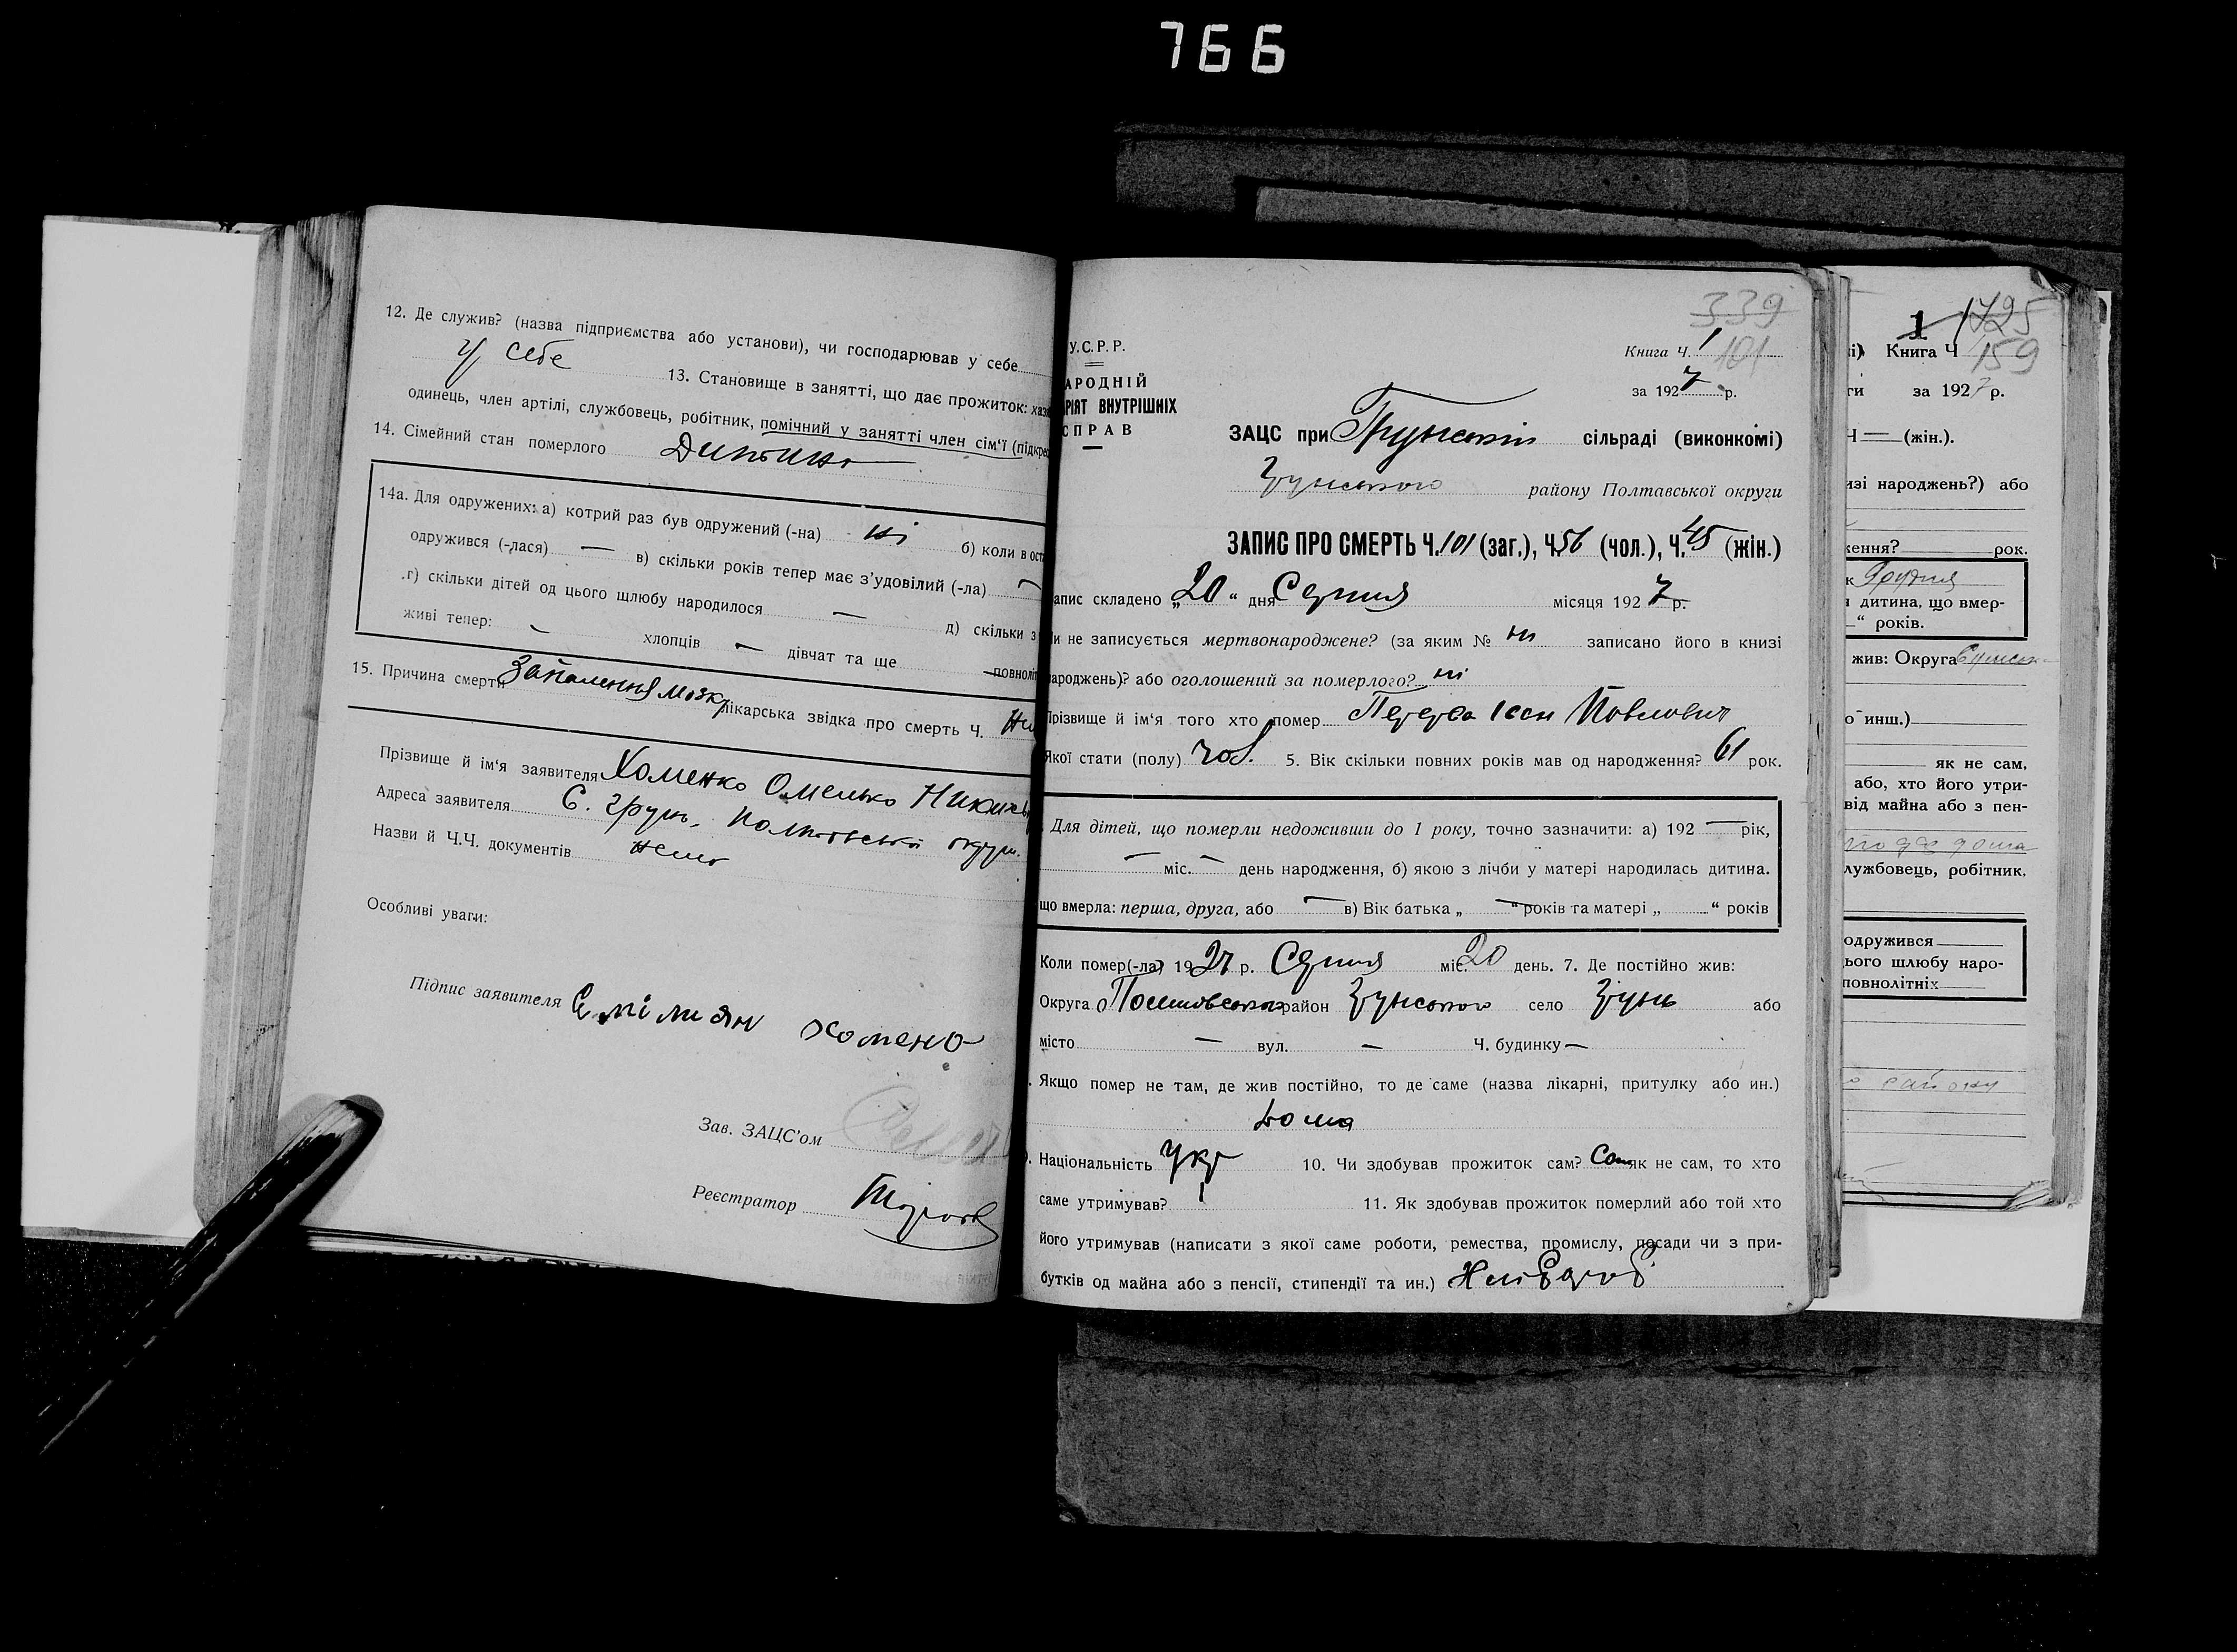 766
12. Де служив? (назва підприємства або установи), чи господарював у себе
у себе 13. Становище в занятті, що дає прожиток: хазя
одинець, член артілі, службовець, робітник, помічний у занятті член сім'ї (підкрес
14. Сімейний стан померлого Дитина
14а. Для одружених: а) котрий раз був одружений (-на) ні б) коли в ост
одружився (-лася) — в) скільки років тепер має з'удовілий (-ла) —
г) скільки дітей од цього шлюбу народилося — д) скільки з
живі тепер: — хлопців — дівчат та ще — повноліт
15. Причина смерти Запалення мозку лікарська звідка про смерть Ч.
Прізвище й ім'я заявителя Хоменко Омелько
Адреса заявителя С. Грунь, Полтавської округи.
Назви й Ч.Ч. документів нема
Особливі уваги:
Підпис заявителя Хомено
Зав. ЗАЦС'ом
Реєстратор
У.С.Р.Р.
АРОДНІЙ
РІЯТ ВНУТРІШНІХ
СПРАВ
339
Книга Ч. 1 101
за 1927 р.
ЗАЦС при Грунській сільраді (виконкомі)
Грунського району Полтавської округи
ЗАПИС ПРО СМЕРТЬ Ч. 101 (заг.), Ч. 56 (чол.), Ч. 45 (жін.)
апис складено „20“ дня Серпня місяця 1927 р.
и не записується мертвонароджене? (за яким № ні записано його в книзі
ароджень)? або оголошений за померлого? ні
Прізвище й ім'я того хто помер Перерва Іван Павлович
Якої стати (полу) чол. 5. Вік скільки повних років мав од народження? 61 рок.
Для дітей, що померли недоживши до 1 року, точно зазначити: а) 192 — рік,
— міс. — день народження, б) якою з лічби у матері народилась дитина.
що вмерла: перша, друга, або — в) Вік батька „ — “ років та матері „ “ років
Коли помер(-ла) 1927 р. Серпня міс. 20 день. 7. Де постійно жив:
Округа Полтавська район Грунського село Грунь або
місто — вул. — Ч. будинку —
. Якщо помер не там, де жив постійно, то де саме (назва лікарні, притулку або ин.)
Дома
. Національність Укр 10. Чи здобував прожиток сам? Сам як не сам, то хто
саме утримував? 11. Як здобував прожиток померлий або той хто
його утримував (написати з якої саме роботи, ремества, промислу, посади чи з при-
бутків од майна або з пенсії, стипендії та ин.) Хлібороб
1 1725
і) Книга Ч 159
ги за 1927 р.
Ч — (жін.).
изі народжень?) або
ження? рок.
к Грудня
я дитина, що вмер-
“ років.
жив: Округа Сумськ
о инш.)
як не сам,
або, хто його утри-
від майна або з пен-
лужбовець, робітник,
одружився
ього шлюбу наро-
повнолітніх
району